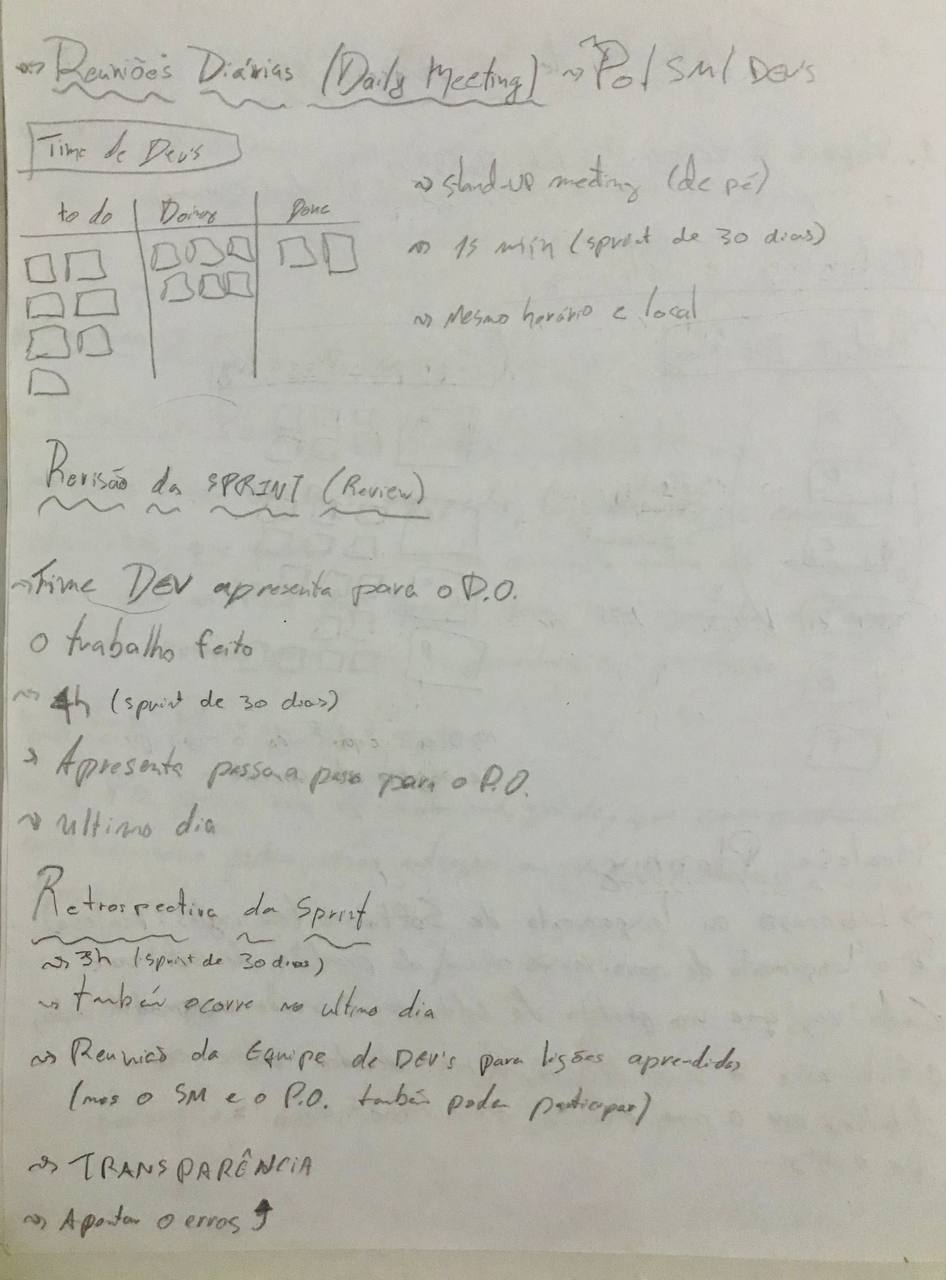 Reuniões Diárias (Daily Meeting) ~> PO/SM/DEV'S
Time de Dev's
to do Doing Done
~> Stand-UP meeting (de pé)
~> 15 min (sprint de 30 dias)
~> Mesmo horário e local
Revisão da SPRINT (Review)
~> Time DEV apresenta para o P.O.
o trabalho feito
~> 4h (sprint de 30 dias)
> Apresenta passo a passo para o P.O.
~> ultimo dia
Retrospectiva da Sprint
~> 3h (sprint de 30 dias)
~> também ocorre no ultimo dia
~> Reunião da Equipe de DEV's para lições aprendidas
(mas o SM e o P.O. também podem participar)
~> TRANSPARÊNCIA
~> Apontar o erros